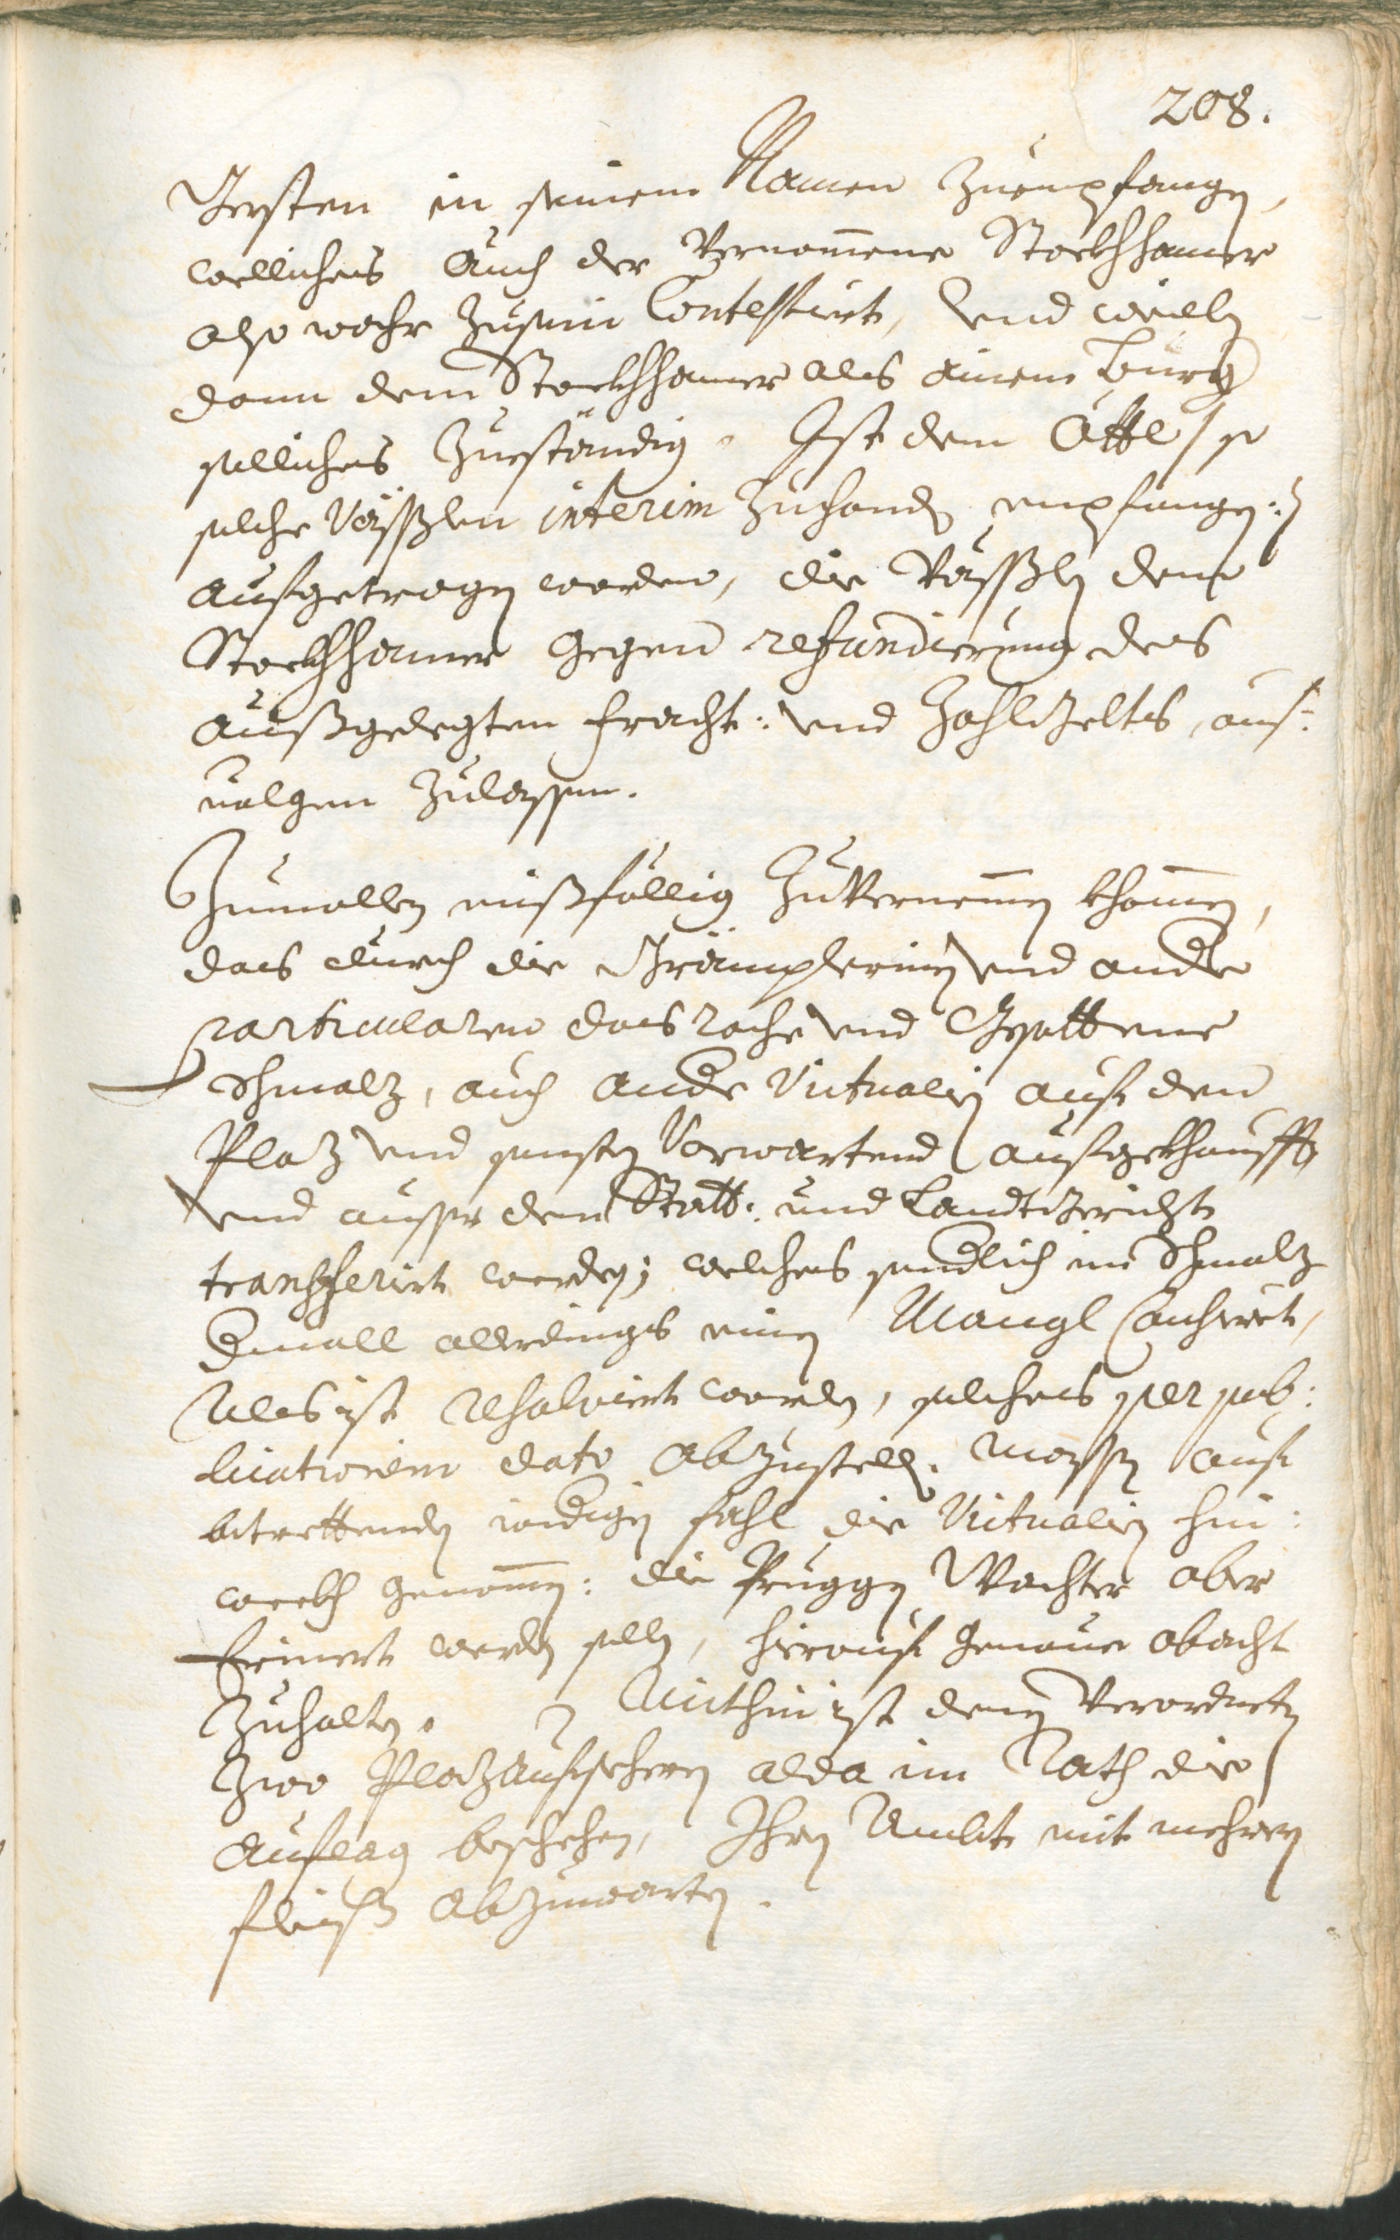 208.
Ersten in seinem Namen zuempfangen,
welliches auch der Vernomene Stockhhamer
also wahr zusein Contestiert, Vnd weiln
dann dem Stockhhamer als einem Burg
solliches zueständig. Ist dem Ättl /so
solche Vässlen interim zuhanden empfangen:/
aufgetragen worden, die Vässlen dem
Stockhhamer gegen refundierung des
außgelegten fracht: Vnd Zohlgelts, auf:
uolgen zulassen.
Zumallen mißfällig zuVernemen khomen,
das durch die Grämplerinen Vnd andere
particularen das rohe Vnd Gsottene
Schmalz, auch andere Victualien auf dem
Plaz Vnd sonsten Vorwartend aufgekhaufft
Vnd ausser dem Statt: und Landtgericht
transferirt werden; welches sondlich im Schmalz
dermall allerdings einen Mangl Causiert,
Als ist resolviert worden, solches per pub:
licationem dato abzustellen. massen auf
betrettenden widrigen fahl die Victualien hin:
weckh genomen: die Pruggen Wachter aber
Erinert werden sollen, hierauf genaue obacht
zuhalten. Mithin ist denen Verordneten
zwo Plazaufsehern alda im Rath die
Auflag beschehen, Ihren Ambt mit mehrern
fleiß abzuwarten.